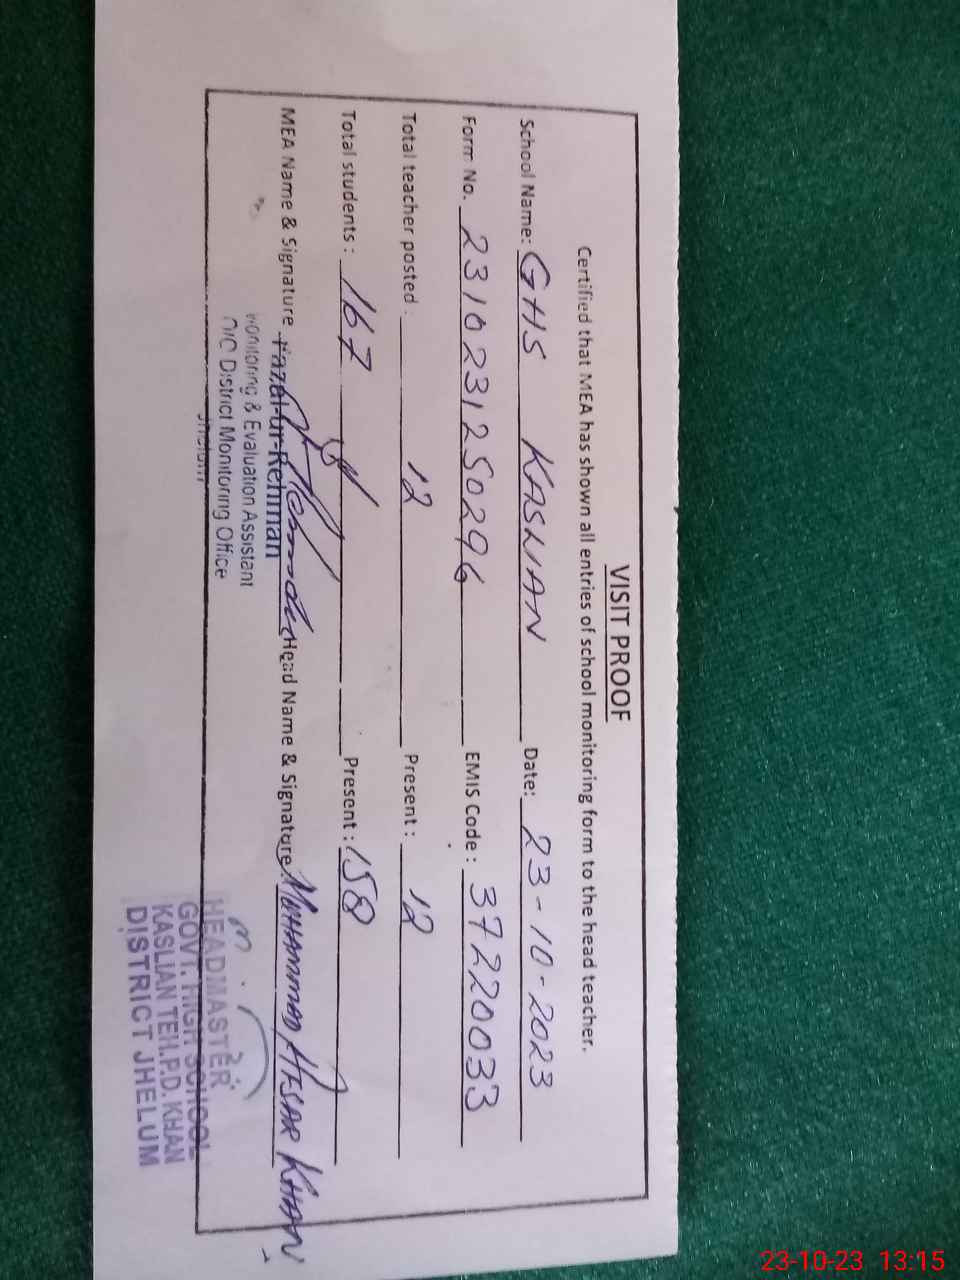 VISIT PROOF
Certified that MEA has shown all entries of school monitoring form to the head teacher.
School Name: GHS KASLIAN Date: 23-10-2023
Form No. 2310231250296 EMIS Code: 37220033
Total teacher posted: 12 Present: 12
Total students: 167 Present: 158
MEA Name & Signature Fazal-ur-Rehman Head Name & Signature: MUHAMMAD AFSAR KHAN
Monitoring & Evaluation Assistant
O/O District Monitoring Office
Jhelum
HEADMASTER
GOVT. HIGH SCHOOL
KASLIAN TEH.P.D. KHAN
DISTRICT JHELUM
23-10-23 13:15